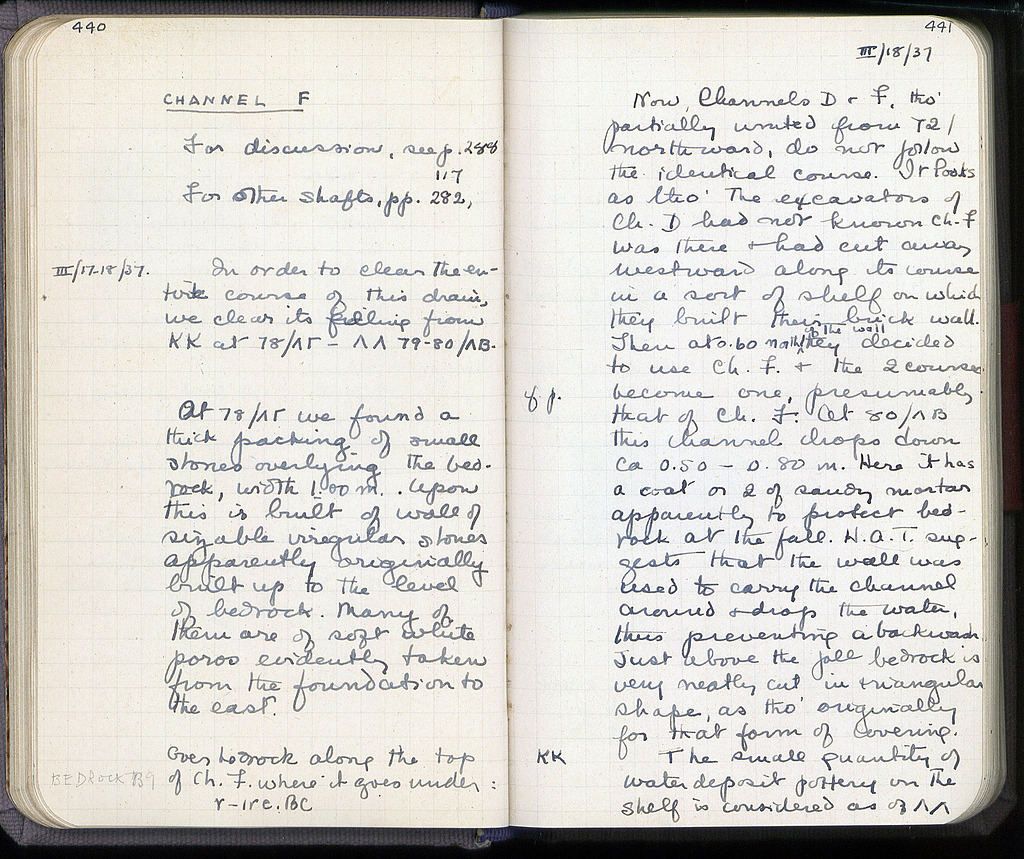 440
CHANNEL F
For discussion, see p. 288
117
For other shafts, pp. 282,
III/17-18/37.
In order to clear the en-
tire course of this drain,
we clear its filling from
KK at 78/ΛΓ – ΛΛ 79-80/ΛΒ.
At 78/ΛΓ we found a
thick packing of small
stones overlying the bed-
rock, width 1.00 m.. Upon
this is built a wall of
sizable irregular stones
apparently originally
built up to the level
of bedrock. Many of
them are of soft white
poros evidently taken
from the foundation to
the east.
Over bedrock along the top
of Ch. F. where it goes under :
BEDROCK
V-IV c. BC
441
III/18/37
Now, Channels D + F, tho'
partially united from
northward, do not follow
the identical course. It looks
as tho' the excavators of
Ch. D had not known Ch. F
was there + had cut away
westward along its course
in a sort of shelf on which
they built their brick wall.
of the wall
Then at 0.60 north they decided
to use Ch. F. + the 2 courses
become one, presumably
that of Ch. F. At 80/ΛΒ
this channel drops down
ca 0.50 – 0.80 m. Here it has
a coat or 2 of sandy mortar
apparently to protect bed-
rock at the fall. H.A.T. sug-
gests that the wall was
used to carry the channel
around + drop the water,
thus preventing a backwash.
Just above the fall bedrock is
very neatly cut in triangular
shape, as tho' originally
for that form of covering.
KK
The small quantity of
water deposit pottery on the
shelf is considered as of ΛΛ